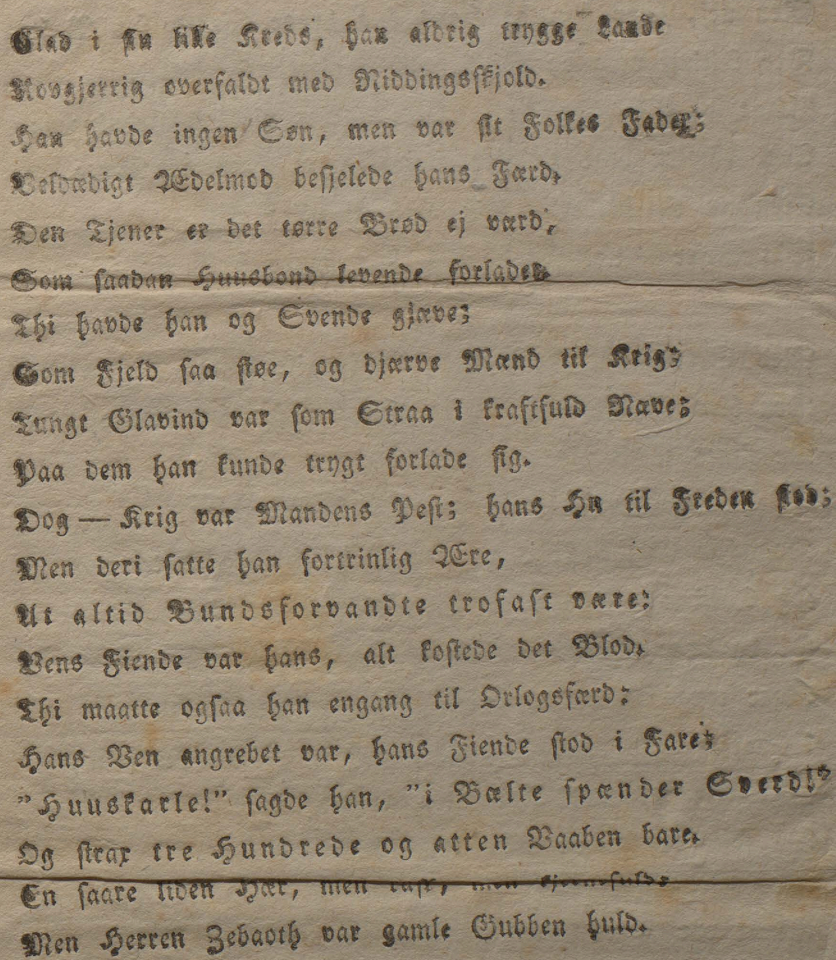 Glad i sin lille Kreds, han aldrig trygge Lande
Rovgjerrig overfaldt med Niddingsskjold.
Han havde ingen Søn, men var sit Folkes Fader;
Veldædigt Ædelmod besjelede hans Færd.
Den Tjener er det tørre Brød ej værd,
Som saadan Huusbond levende forlader.
Thi havde han og Svende gjæve;
Som Fjeld saa støe, og djærve Mænd til Krig;
Tungt Glavind var som Straa i kraftfuld Næve;
Paa dem han kunde trygt forlade sig.
Dog — Krig var Mandens Pest; hans Hu til Freden stod;
Men deri satte han fortrinlig Ære,
At altid Bundsforvandte trofast være:
Vens Fiende var hans, alt kostede det Blod.
Thi maatte ogsaa han engang til Orlogsfærd:
Hans Ven angrebet var, hans Fiende stod i Fare;
"Huuskarle!" sagde han, "i Bælte spænder Sverd!"
Og strax tre Hundrede og atten Vaaben bare.
En saare liden Hær, men rask, men kjernefuld;
Men Herren Zebaoth var gamle Gubben huld.